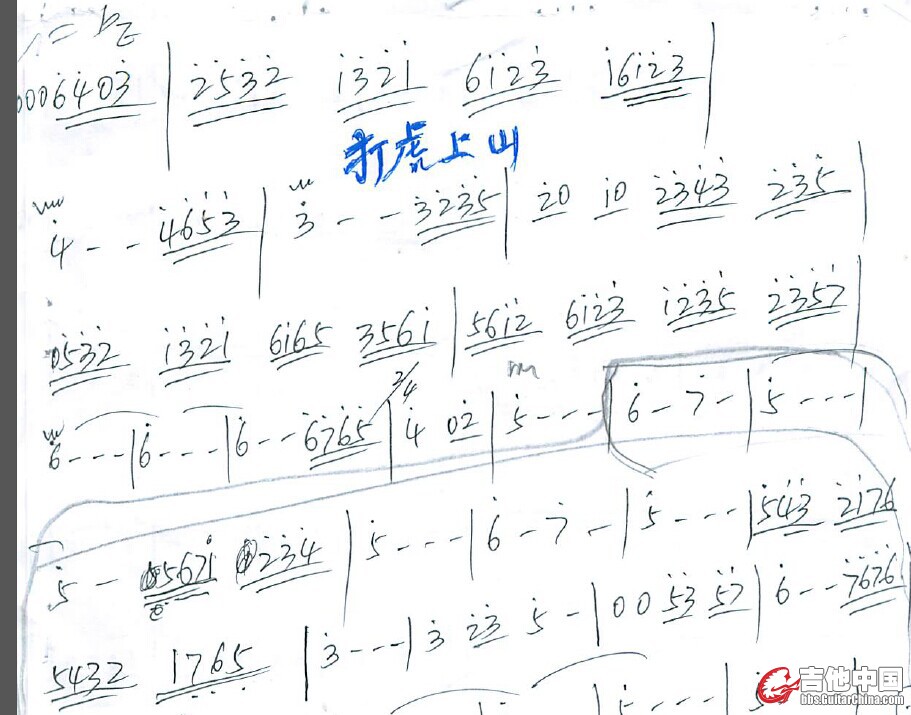 1=bE
0006403 | 2532 1321 6123 16123 |
打虎上山
4 - - 4653 | 3 - - 3235 | 20 10 2343 235 |
0532 1321 6165 3561 | 5612 6123 1235 2357 |
2/4
6 - - - | 6 - - - | 6 - - 6765 | 4 02 | 5 - - - | 6 - 7 - | 5 - - - |
5 - 5671 0234 | 5 - - - | 6 - 7 - | 5 - - - | 543 2176
5432 1765 | 3 - - - | 3 23 5 - | 00 53 57 | 6 - - 7676
吉他中国
bbs.GuitarChina.com